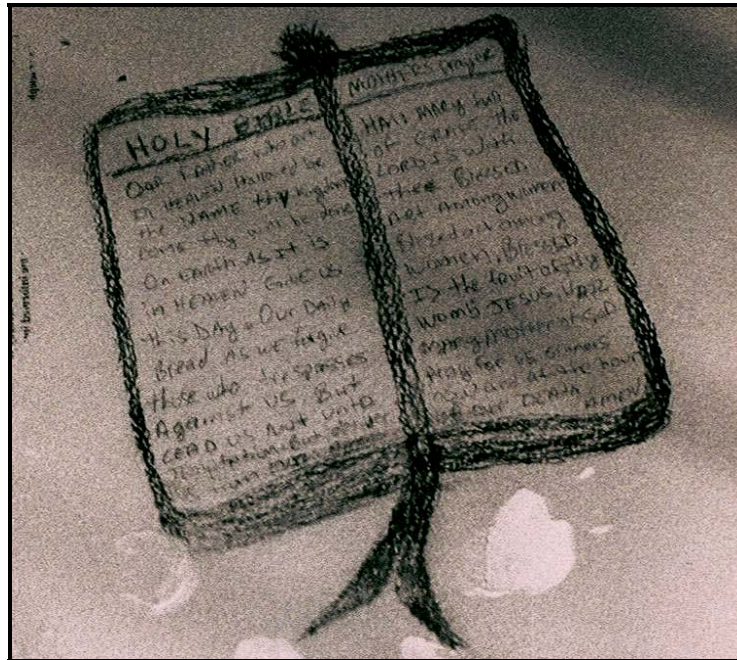 HOLY BIBLE
Our Father who art
In HEAVEN Hallowed be
the NAME thy Kingdom
come thy will be done
On EARTH AS It IS
in HEAVEN Give US
this DAY Our DAily
Bread As we forgive
those who trespasses
Against US, But
LEAD US Not Unto
Temptation But deliver
MOTHERS Prayer
HAIL MARY full
of Grace the
LORD IS With
thee Blessed
Art Among women
Blessed art among
women, BLESSED
IS the fruit of thy
Womb JESUS,
Mother of GOD
Pray for US sinners
and at the hour
of our DEATH
AMEN